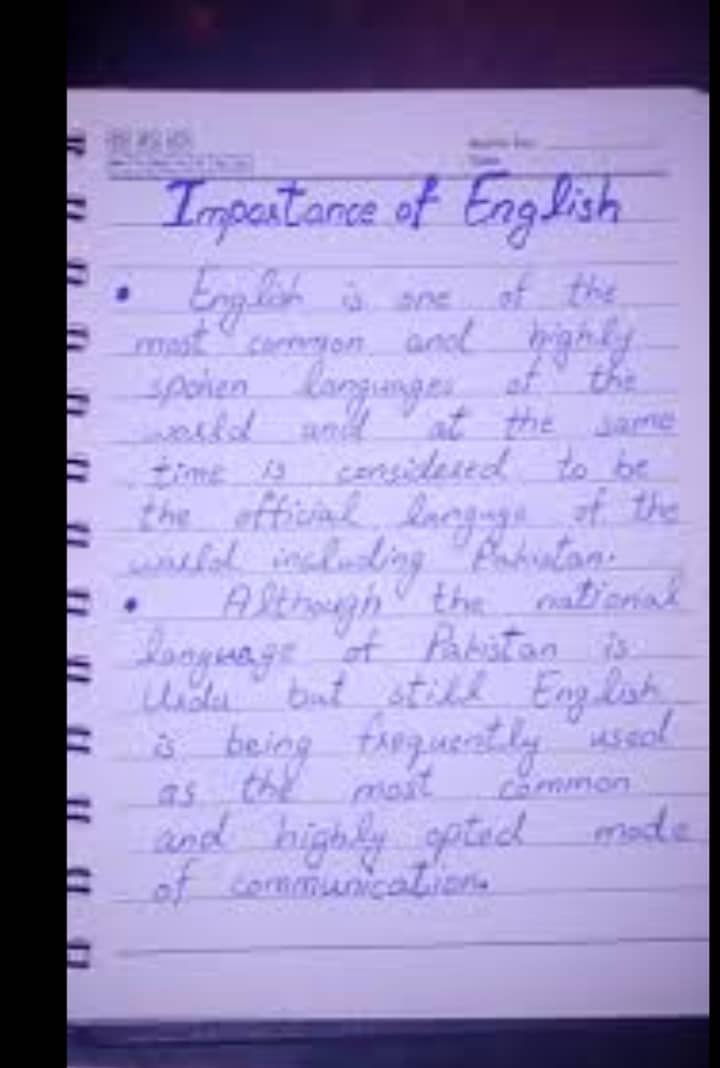 Importance of English
• English is one of the
most common and highly
spoken languages of the
world and at the same
time is considered to be
the official language of the
world including Pakistan.
• Although the national
language of Pakistan is
Urdu but still English
is being frequently used
as the most common
and highly opted mode
of communication.